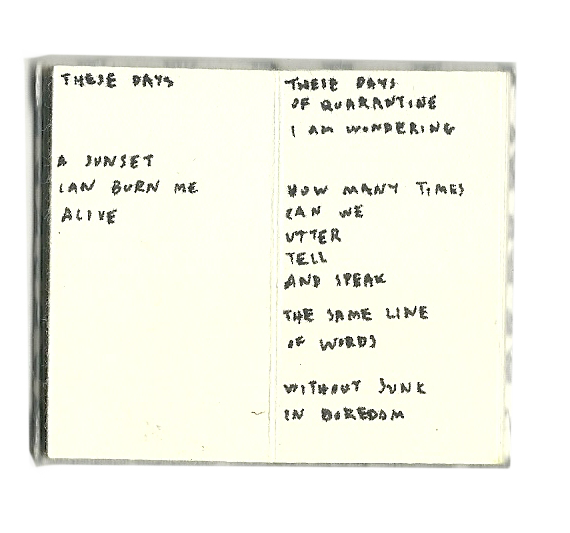 THESE DAYS
A SUNSET
CAN BURN ME
ALIVE
THESE DAYS
OF QUARANTINE
I AM WONDERING
HOW MANY TIMES
CAN WE
UTTER
TELL
AND SPEAK
THE SAME LINE
OF WORDS
WITHOUT SUNK
IN BOREDOM